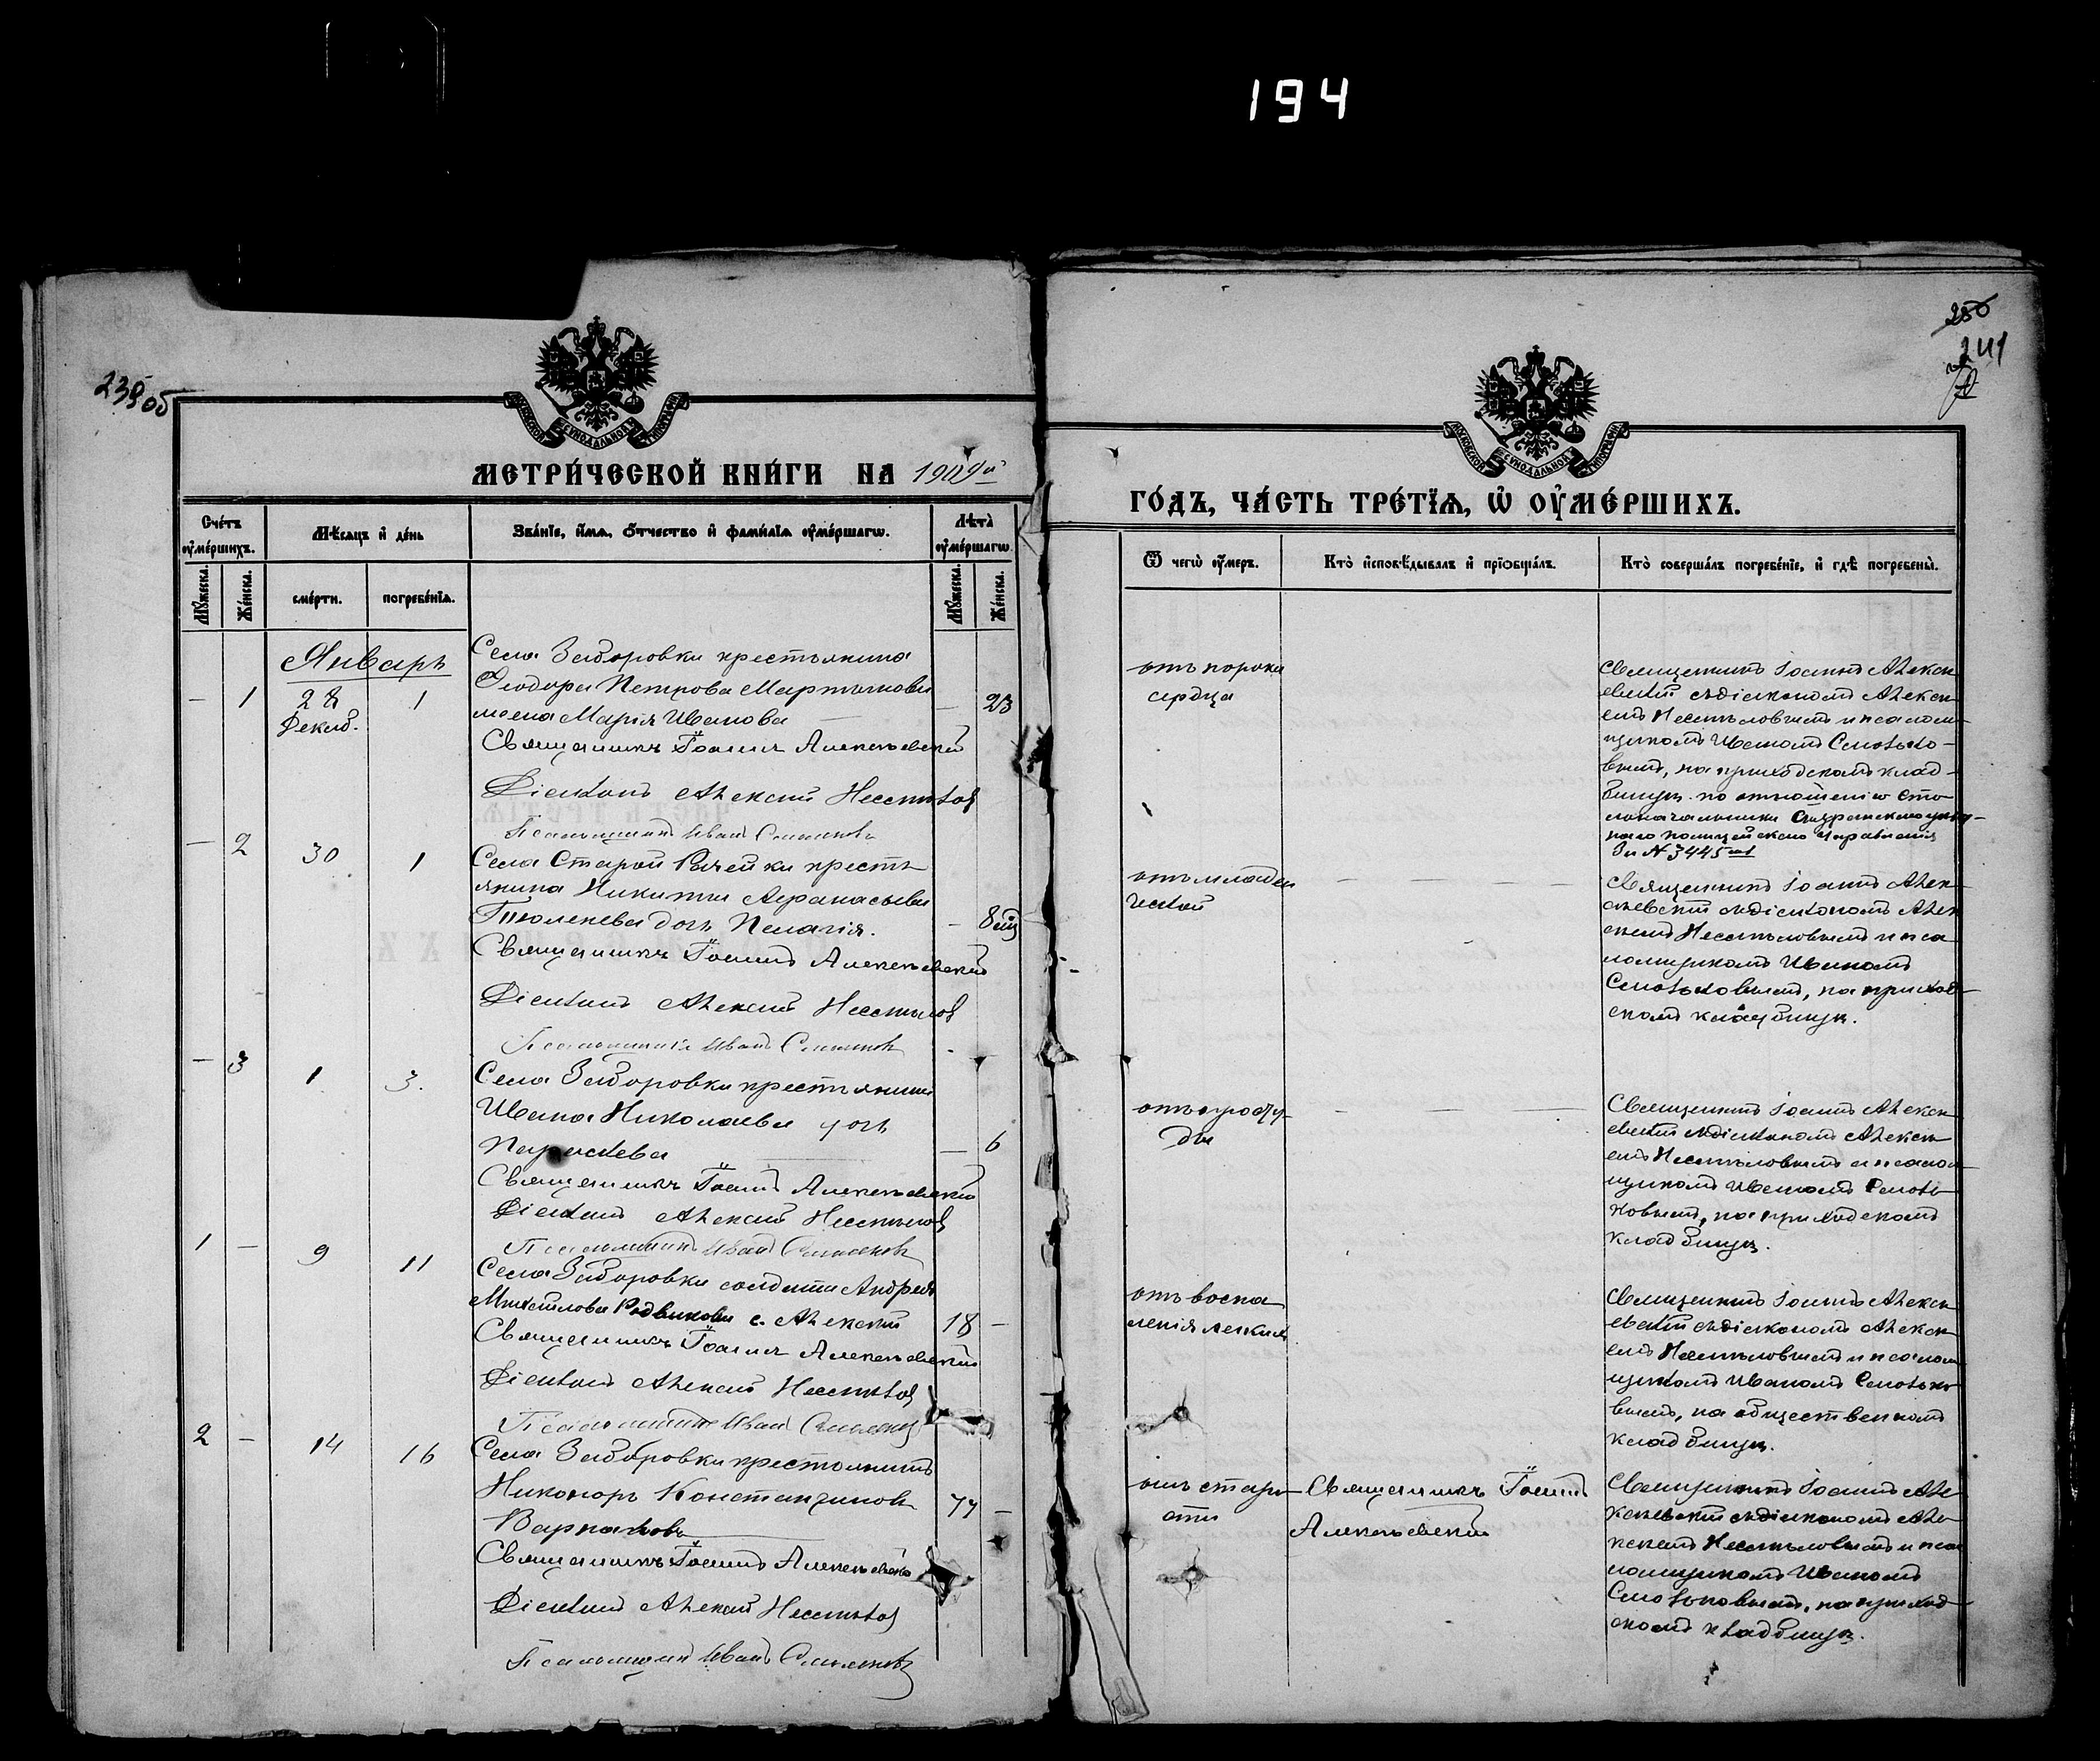 194
241
МЕТРИ́ЧЕСКОЙ КНИ́ГИ НА 1909й
ГО́ДЪ, ЧА́СТЬ ТРЕ́ТЇѦ, Ѡ҆ ОУ҆МЕ́РШИХЪ.
Сче́тъ оу҆ме́ршихъ.
Мꙋ́жеска.
Же́нска.
Мѣ́сѧцъ и҆ де́нь
сме́рти.
погребе́нїѧ.
Зва́нїе, и҆́мѧ, ѻ҆́тчество и҆ фами́лїѧ оу҆ме́ршагѡ.
Лѣ́та оу҆ме́ршагѡ.
Мꙋ́жеска.
Же́нска.
Ѿ чегѡ̀ оу҆́меръ.
Кто̀ и҆сповѣ́дывалъ и҆ прїѡбща́лъ.
Кто̀ соверша́лъ погребе́нїе, и҆ гдѣ̀ погребены̀.
Январь
— 1 28 Декаб. 1
Села Заборовки крестьянина
Ѳеодора Петрова Мартынова
жена Марія Иванова
— 23
Священникъ Іоаннъ Алексѣевскій
Діаконъ Алексій Несмѣловъ
Псаломщикъ Иванъ
отъ порока
сердца
Священникъ Іоаннъ Алексѣ-
евскій съ діакономъ Алексѣ-
емъ Несмѣловымъ и псалом-
щикомъ Иваномъ
вымъ, на приходскомъ клад-
бищѣ по отношенію сто-
лоначальника Сызранскаго уѣзд-
наго полицейскаго управленія
За № 3445
— 2 30 1
Села Старой Рачейки кресть-
янина Никиты Аѳанасьева
Тюленева дочь Пелагія.
— 8 мц
Священникъ Іоаннъ Алексѣевскій
Діаконъ Алексій Несмѣловъ
Псаломщикъ Иванъ
отъ младен
ческой
Священникъ Іоаннъ Алек-
сѣевскій съ діакономъ Алек
сѣемъ Несмѣловымъ и пса-
ломщикомъ Иваномъ
на приход-
скомъ кладбищѣ.
— 3 1 3.
Села Заборовки крестьянина
Ивана Николаева дочь
Параскева
— 6
Священникъ Іоаннъ Алексѣевскій
Діаконъ Алексій Несмѣловъ
Псаломщикъ Иванъ
отъ просту-
ды
Священникъ Іоаннъ Алексѣ-
евскій съ діакономъ Алексѣ-
емъ Несмѣловымъ и псалом-
щикомъ Иваномъ
ковымъ, на приходскомъ
кладбищѣ.
1 — 9 11
Села Заборовки солдата Андрея
Михайлова с. Алексій
18 —
Священникъ Іоаннъ Алексѣевскій
Діаконъ Алексій Несмѣловъ
Псаломщикъ Иванъ
отъ воспа
ленія легкихъ
Священникъ Іоаннъ Алексѣ-
евскій съ діакономъ Алексѣ-
емъ Несмѣловымъ и псалом-
щикомъ Иваномъ
вымъ, на общественномъ
кладбищѣ.
2 — 14 16
Села Заборовки крестьянинъ
Никоноръ Константиновъ
77 —
Священникъ Іоаннъ Алексѣевскій
Діаконъ Алексій Несмѣловъ
Псаломщикъ Иванъ
отъ старо-
сти
Священникъ Іоаннъ
Алексѣевскій
Священникъ Іоаннъ Але-
ксѣевскій съ діакономъ Але-
ксѣемъ Несмѣловымъ и пса-
ломщикомъ Иваномъ
на приход-
скомъ кладбищѣ.